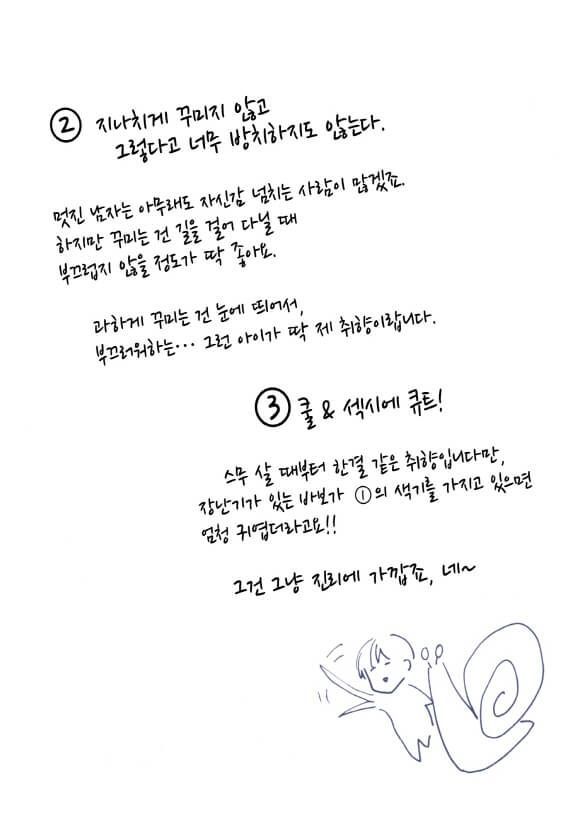 ② 지나치게 꾸미지 않고
그렇다고 너무 방치하지도 않는다.
멋진 남자는 아무래도 자신감 넘치는 사람이 많겠죠.
하지만 꾸미는 건 길을 걸어 다닐 때
부끄럽지 않을 정도가 딱 좋아요.
과하게 꾸미는 건 눈에 띄어서,
부끄러워하는… 그런 아이가 딱 제 취향이랍니다.
③ 쿨 & 섹시에 큐트!
스무 살 때부터 한결 같은 취향입니다만,
장난기가 있는 바보가 ①의 색기를 가지고 있으면
엄청 귀엽더라고요!!
그건 그냥 진리에 가깝죠, 네~